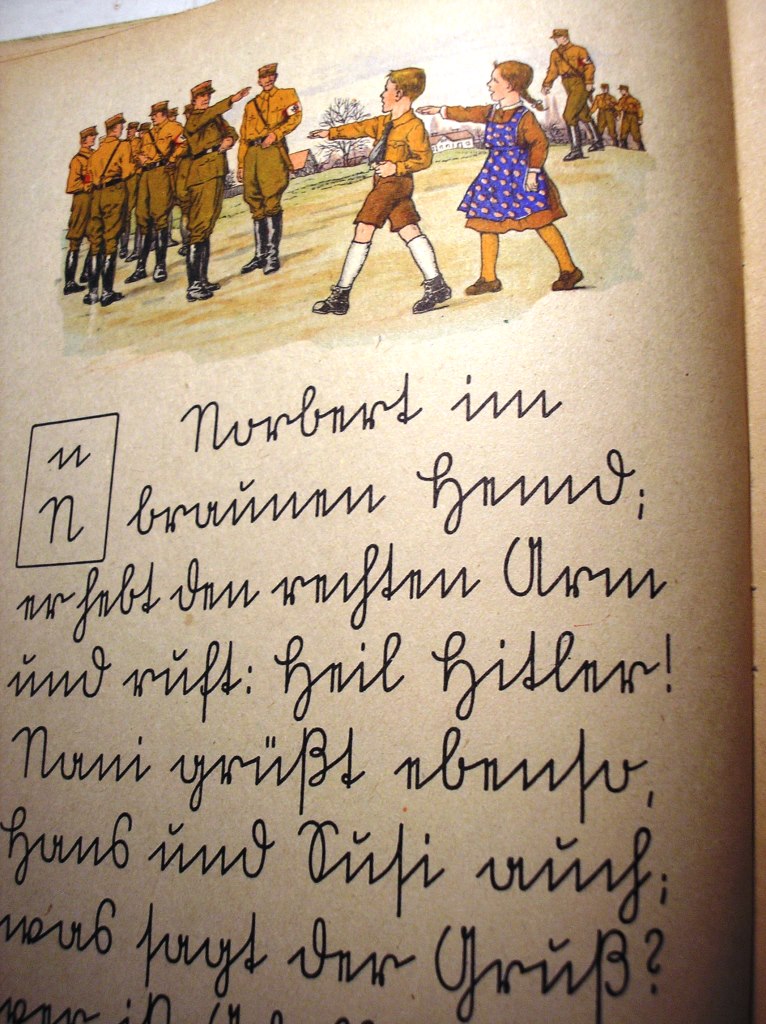 n
N
Norbert im
braunen Hemd;
er hebt den rechten Arm
und ruft: Heil Hitler!
Nani grüßt ebenso,
Hans und Susi auch;
was sagt der Gruß?